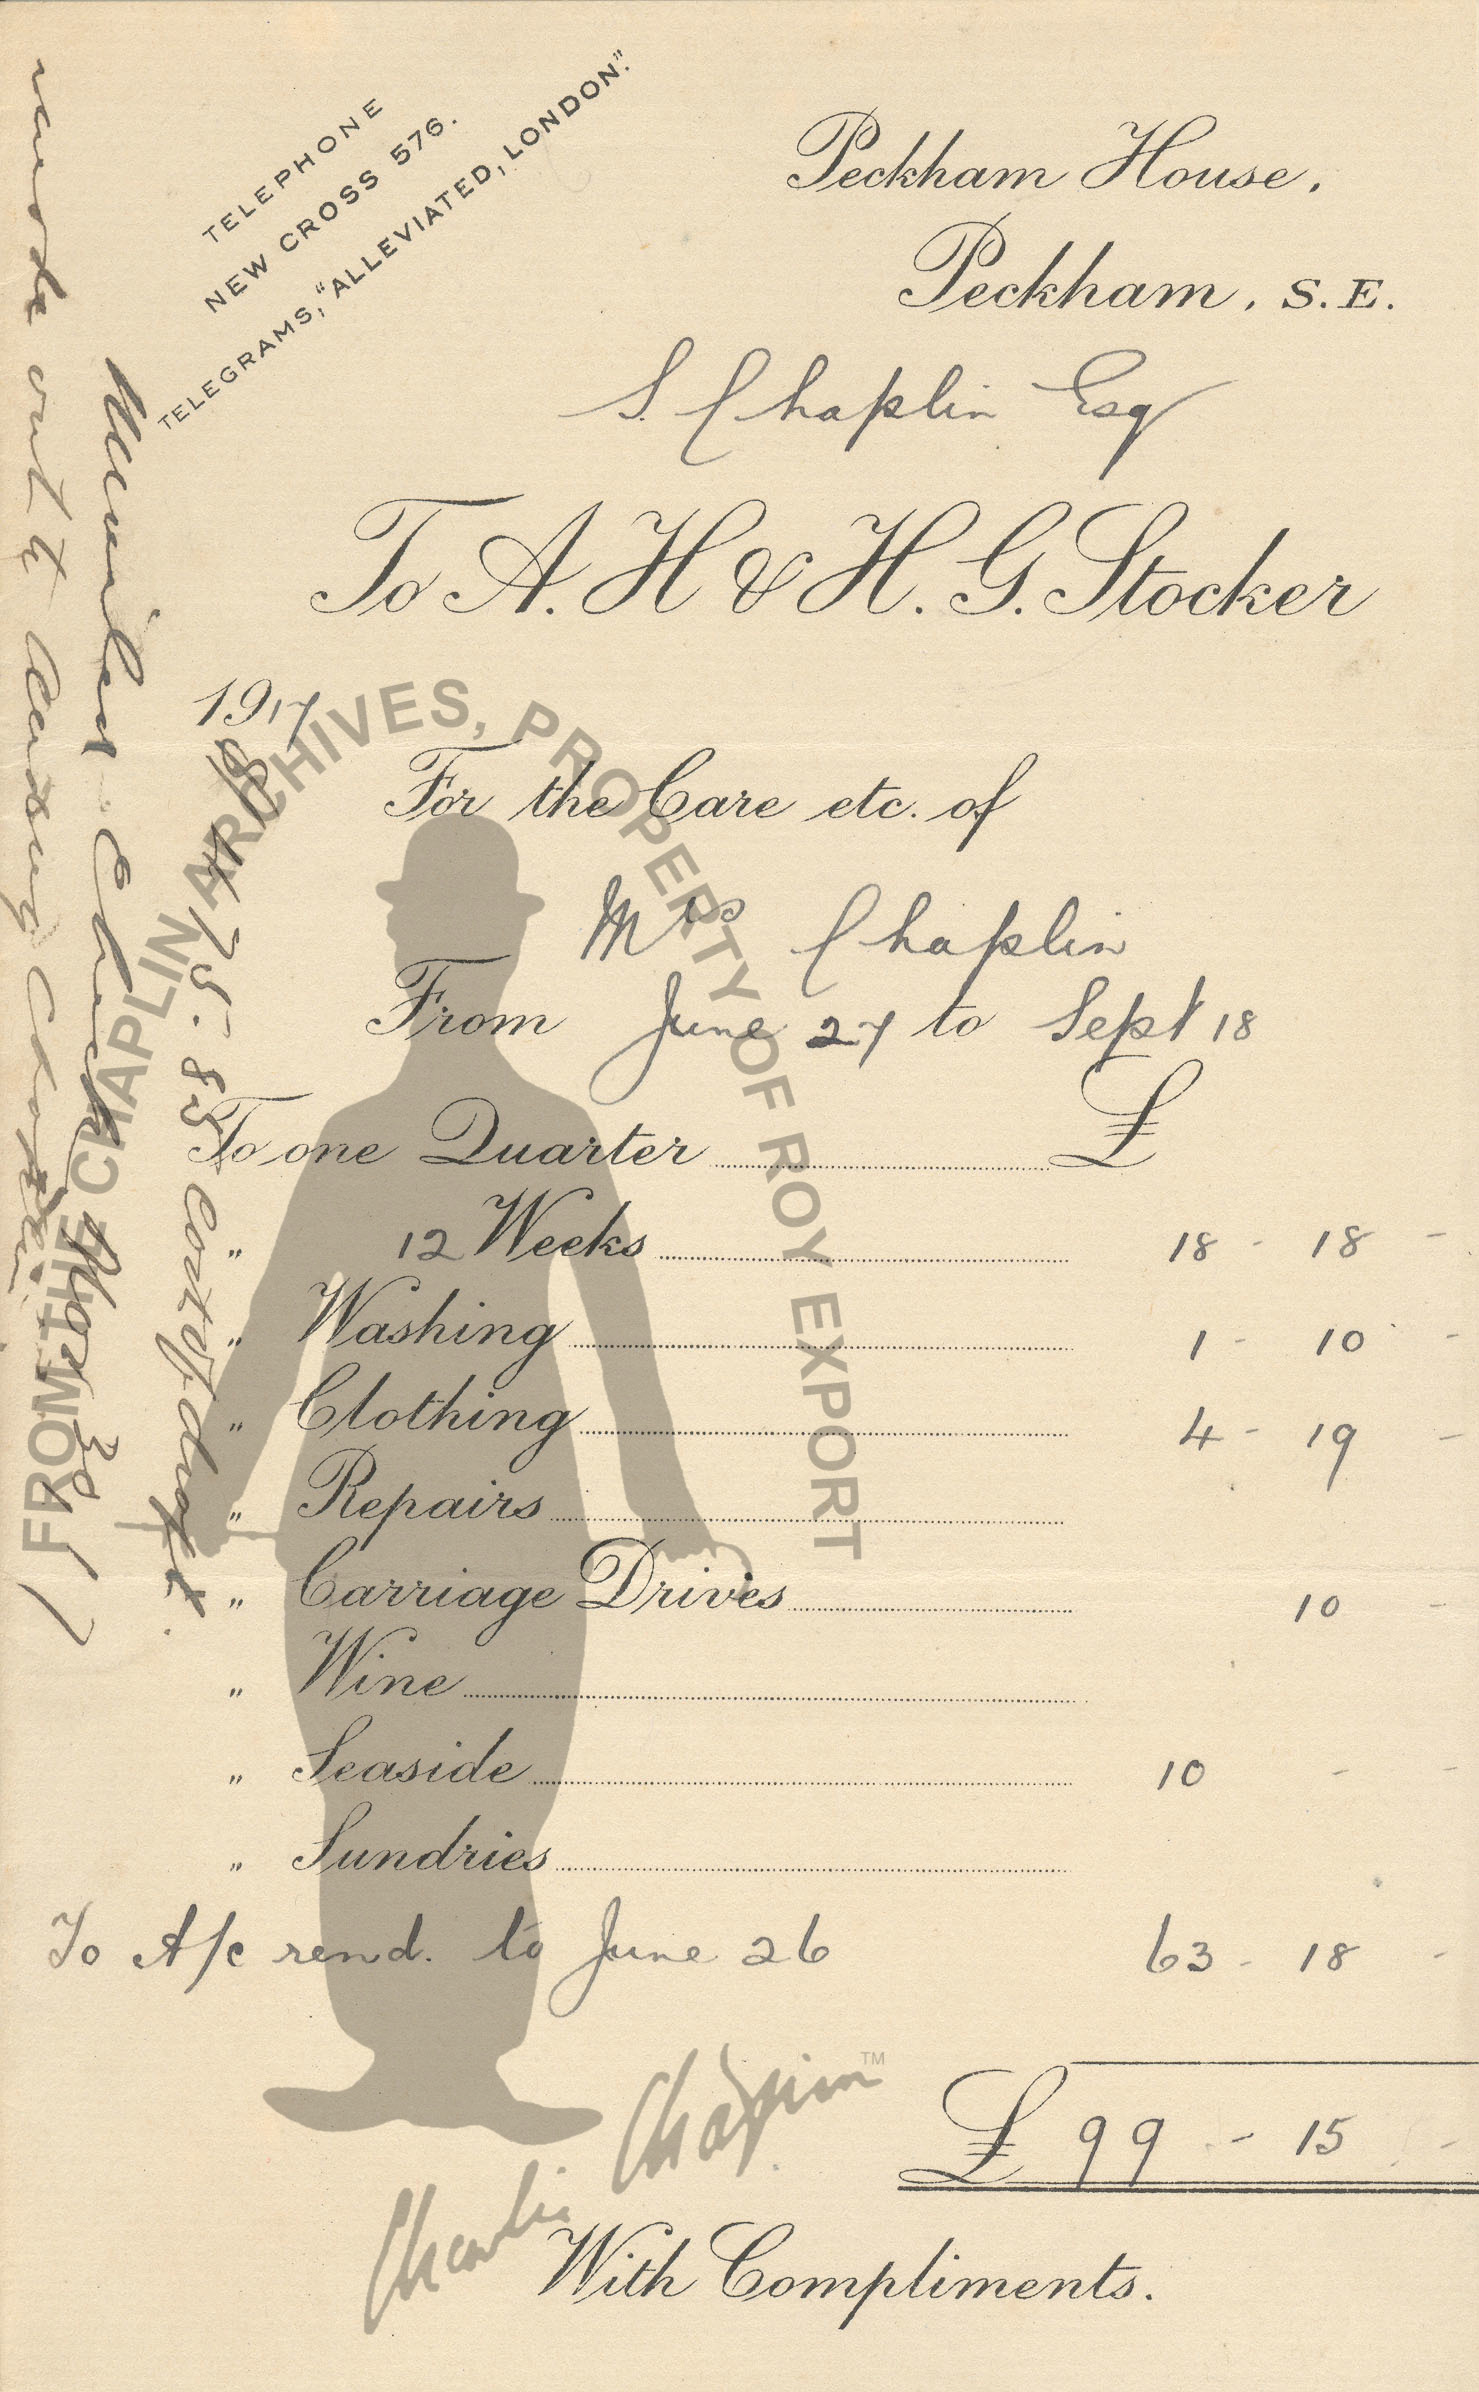 TELEPHONE
NEW CROSS 576.
TELEGRAMS, "ALLEVIATED, LONDON".
Peckham House,
Peckham, S.E.
S. Chaplin Esq
To A. H & H. G. Stocker
1917
For the Care etc. of
Mrs Chaplin
From June 27 to Sept 18
To one Quarter £
" 12 Weeks 18 - 18 -
" Washing 1 - 10 -
" Clothing 4 - 19 -
" Repairs
" Carriage Drives 10 -
" Wine
" Seaside 10 - -
" Sundries
To A/c rend. to June 26 63 - 18 -
£ 99 - 15 -
With Compliments.
Mailed Check Nov 30/17
made out to Aubrey Chaplin
$475.85 Cost of draft.
FROM THE CHAPLIN ARCHIVES, PROPERTY OF ROY EXPORT
Charlie Chaplin™